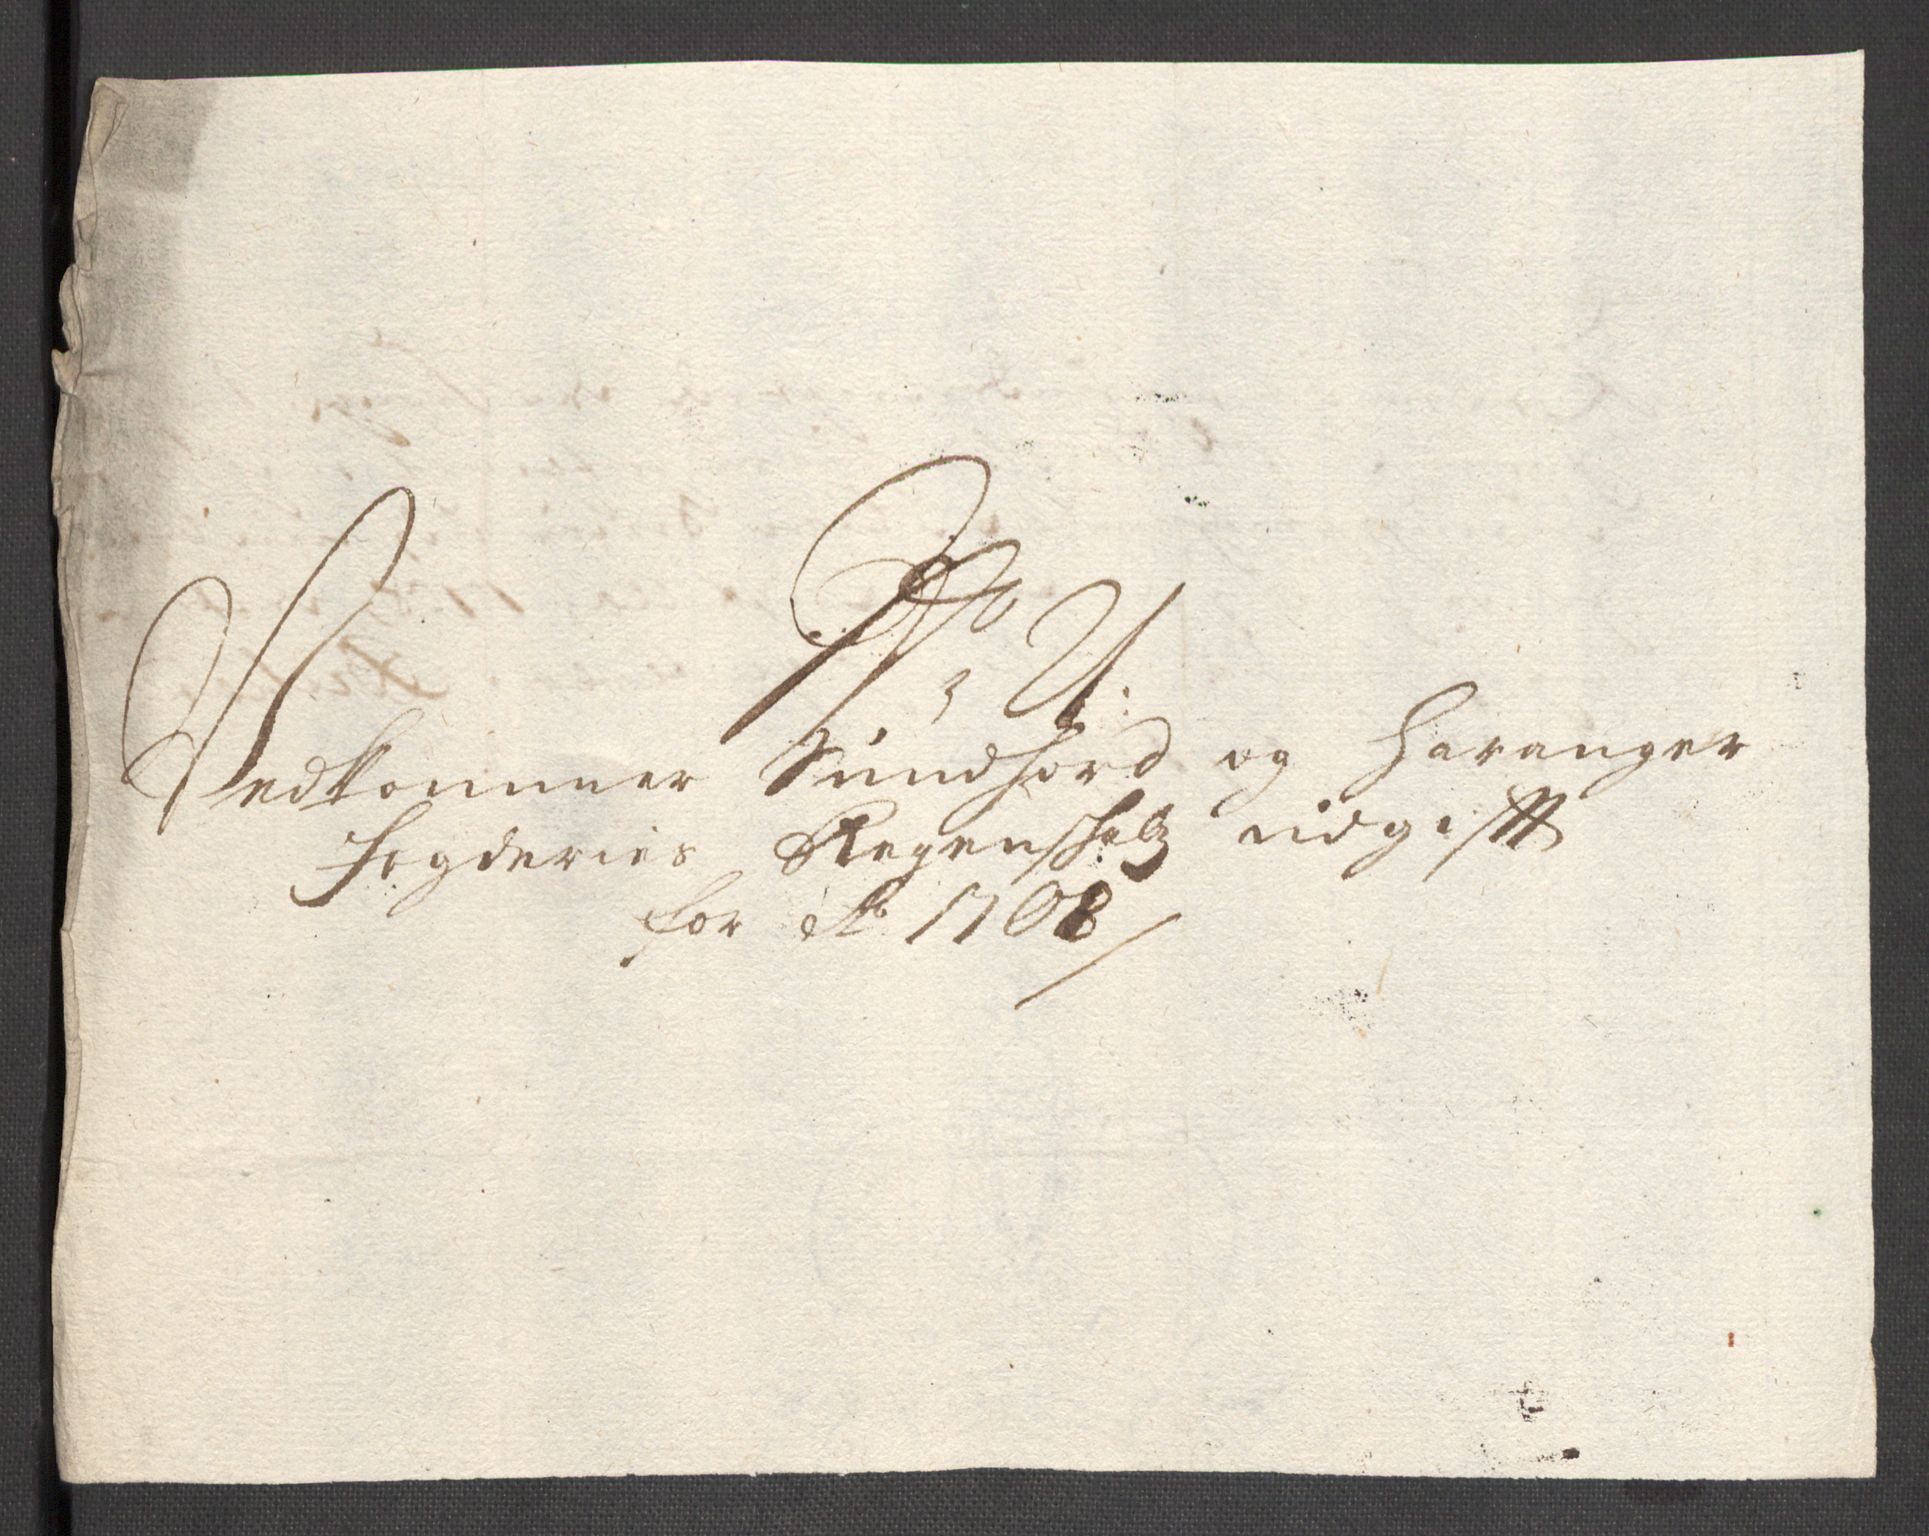 No 2 U:
Vedkommer Sundhord og Haranger
Fogderies Regenskabs udgifft
for Ao 1708